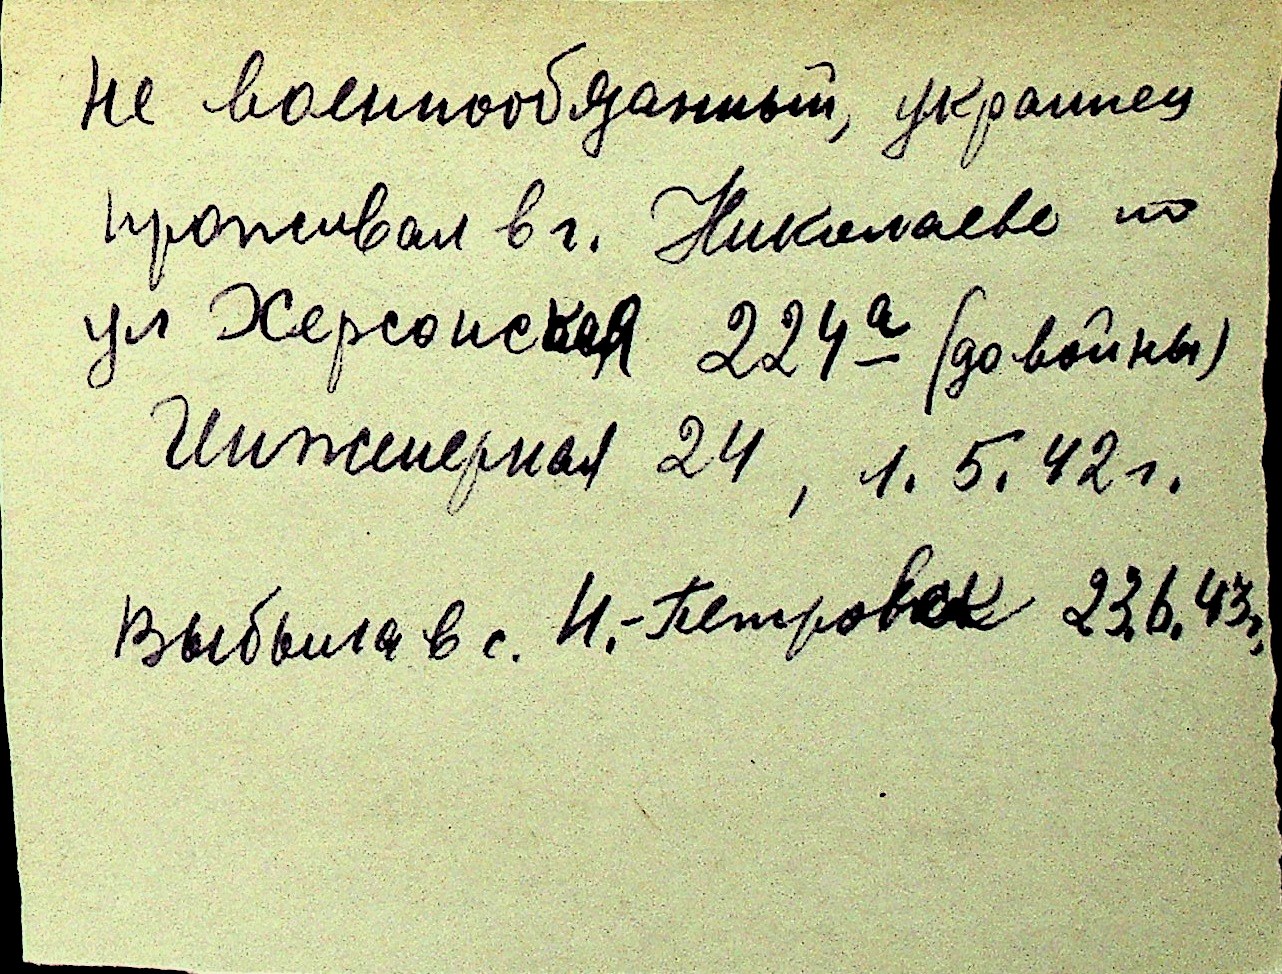 Не военнообязанный, украинец
проживал в г. Николаеве по
ул Херсонская 224а (до войны)
Инженерная 24, 1.5.42 г.
Выбыла в с. Н.-Петровск 23.6.43г,